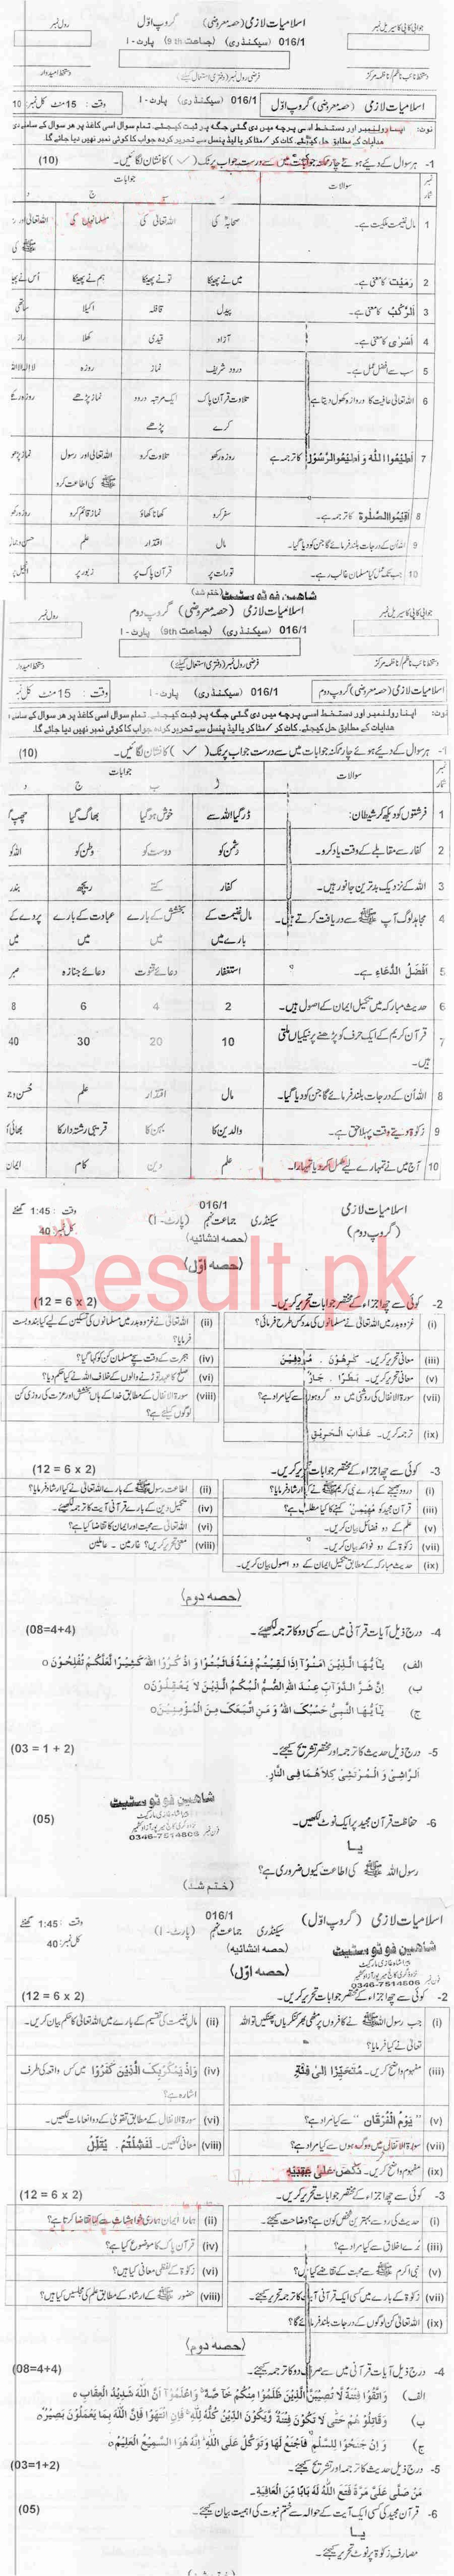 رول نمبر
اسلامیات لازمی (حصہ معروضی) گروپ اوّل
جوابی کاپی کا سیریل نمبر
016/1 (سیکنڈری) (جماعت 9th) پارٹ - I
دستخط امیدوار
فرضی رول نمبر (دفتری استعمال کیلئے)
دستخط نائب ناظم / ناظمہ مرکز
اسلامیات لازمی (حصہ معروضی) گروپ اوّل 016/1 (سیکنڈری) پارٹ - I وقت : 15 منٹ کل نمبر: 10
نوٹ: اپنا رولنمبر اور دستخط اسی پرچہ میں دی گئی جگہ پر ثبت کیجئے۔ تمام سوال اسی کاغذ پر ہر سوال کے سامنے دی
ہدایات کے مطابق حل کیجئے۔ کاٹ کر / مٹا کر یا لیڈ پنسل سے تحریر کردہ جواب کا کوئی نمبر نہیں دیا جائے گا۔
1- ہر سوال کے دیئے ہوئے چار ممکنہ جوابات میں سے درست جواب پر ٹک (✓) کا نشان لگائیں۔ (10)
نمبر شمار سوالات جوابات
ج د
1 مال غنیمت ملکیت ہے۔ صحابہؓ کی اللہ تعالیٰ کی مسلمانوں کی اللہ تعالیٰ اور ﷺ کی
2 رَمَیْتَ کا معنی ہے۔ میں نے پھینکا تو نے پھینکا ہم نے پھینکا اُس نے
3 اَلرَّکْبُ کا معنی ہے۔ پیدل قافلہ اکیلا ساتھی
4 اَسْرٰی کا معنی ہے۔ آزاد قیدی کھلا راز
5 سب سے افضل عمل ہے۔ درود شریف نماز روزہ لا الہ الا اللہ
6 اللہ تعالیٰ عافیت کا دروازہ کھول دیتا ہے تلاوت قرآن پاک کرے ایک مرتبہ درود پڑھے نماز پڑھے روزہ رکھے
7 اَطِیْعُوا اللّٰہَ وَ اَطِیْعُوا الرَّسُوْلَ کا ترجمہ ہے روزہ رکھو تلاوت کرو اللہ تعالیٰ اور رسول ﷺ کی اطاعت کرو نماز پڑھو
8 اَقِیْمُوا الصَّلٰوۃَ کا ترجمہ ہے۔ سفر کرو کھانا کھاؤ نماز قائم کرو روزہ رکھو
9 اللہ اُن کے درجات بلند فرمائے گا جن کو دیا گیا۔ مال اقتدار علم حسن و جمال
10 جب تک عمل کیا مسلمان غالب رہے۔ تورات پر قرآن پاک پر زبور پر انجیل پر
(ختم شد)
شاهین فوٹو سٹیٹ
رول نمبر
اسلامیات لازمی (حصہ معروضی) گروپ دوم
جوابی کاپی کا سیریل نمبر
016/1 (سیکنڈری) (جماعت 9th) پارٹ - I
دستخط امیدوار
فرضی رول نمبر (دفتری استعمال کیلئے)
دستخط نائب ناظم / ناظمہ مرکز
اسلامیات لازمی (حصہ معروضی) گروپ دوم 016/1 (سیکنڈری) پارٹ - I وقت : 15 منٹ کل نمبر
نوٹ: اپنا رولنمبر اور دستخط اسی پرچہ میں دی گئی جگہ پر ثبت کیجئے۔ تمام سوال اسی کاغذ پر ہر سوال کے سامنے
ہدایات کے مطابق حل کیجئے۔ کاٹ کر / مٹا کر یا لیڈ پنسل سے تحریر کردہ جواب کا کوئی نمبر نہیں دیا جائے گا۔
1- ہر سوال کے دیئے ہوئے چار ممکنہ جوابات میں سے درست جواب پر ٹک (✓) کا نشان لگائیں۔ (10)
نمبر شمار سوالات جوابات
ب ج د
1 فرشتوں کو دیکھ کر شیطان: ڈر گیا اللہ سے خوش ہو گیا بھاگ گیا چھپ
2 کفار سے مقابلے کے وقت یاد کرو۔ دشمن کو دوست کو وطن کو اللہ کو
3 اللہ کے نزدیک بدترین جانور ہیں۔ کفار کتے ریچھ بندر
4 مجاہد لوگ آپ ﷺ سے دریافت کرتے ہیں۔ مال غنیمت کے بارے میں بخشش کے بارے میں عبادت کے بارے میں پردے کے میں
5 اَفْضَلُ الدُّعَاءِ ہے۔ استغفار دعائے قنوت دعائے جنازہ صبر
6 حدیث مبارکہ میں تکمیل ایمان کے اصول ہیں۔ 2 4 6 8
7 قرآن کریم کے ایک حرف کو پڑھنے پر نیکیاں ملتی ہیں۔ 10 20 30 40
8 اللہ اُن کے درجات بلند فرمائے گا جن کو دیا گیا۔ مال اقتدار علم حُسن و
9 زکوٰۃ دیتے وقت پہلا حق ہے۔ والدین کا بہن کا قریبی رشتہ دار کا بھائی
10 آج میں نے تمہارے لیے مکمل کر دیا تمہارا۔ علم دین کام ایمان
اسلامیات لازمی 016/1 وقت : 1:45 گھنٹے
(گروپ دوم) سیکنڈری جماعت نہم (پارٹ - I) کل نمبر: 40
(حصہ انشائیہ)
(حصہ اوّل)
Result.pk
2- کوئی سے چھ اجزاء کے مختصر جوابات تحریر کریں۔ (12 = 6 x 2)
(i) غزوہ بدر میں اللہ تعالیٰ نے مسلمانوں کی مدد کس طرح فرمائی؟
(ii) اللہ تعالیٰ نے غزوہ بدر میں مسلمانوں کی تسکین کے لیے کیا بندوبست فرمایا؟
(iii) معانی تحریر کریں۔ کٰرِھُوْنَ ۔ مُرْدِفِیْنَ
(iv) ہجرت کے وقت بچے مسلمان کن کو کہا گیا؟
(v) معانی تحریر کریں۔ بَطَرًا ، جَارٌ
(vi) صلح کا عہد توڑنے والوں کے خلاف اللہ نے کیا حکم دیا؟
(vii) سورۃ الانفال کی روشنی میں دو گروہوں سے کیا مراد ہے؟
(viii) سورۃ الانفال کے مطابق خدا کے ہاں بخشش اور عزت کی روزی کن لوگوں کیلئے ہے؟
(ix) ترجمہ کریں۔ عَذَابَ الْحَرِیْقِ
3- کوئی سے چھ اجزاء کے مختصر جوابات تحریر کریں۔ (12 = 6 x 2)
(i) درود بھیجنے کے بارے نبی کریم ﷺ نے کیا ارشاد فرمایا؟
(ii) اطاعت رسول ﷺ کے بارے اللہ تعالیٰ نے کیا ارشاد فرمایا؟
(iii) قرآن مجید کو مُھَیْمِنْ کہنے کا کیا مطلب ہے؟
(iv) تکمیل دین کے بارے قرآنی آیت کا ترجمہ لکھیے۔
(v) علم کے دو فضائل بیان کریں۔
(vi) اللہ تعالیٰ سے محبت اور ایمان کا تقاضا کیا ہے؟
(vii) زکوٰۃ کے دو فوائد بیان کریں۔
(viii) معنی تحریر کریں؟ غارمین - عاملین
(ix) حدیث مبارکہ کے مطابق تکمیل ایمان کے دو اصول بیان کریں۔
(حصہ دوم)
4- درج ذیل آیات قرآنی میں سے کسی دو کا ترجمہ لکھیئے۔ (08=4+4)
الف) یٰٓاَیُّھَا الَّذِیْنَ اٰمَنُوْٓا اِذَا لَقِیْتُمْ فِئَۃً فَاثْبُتُوْا وَ اذْکُرُوا اللّٰہَ کَثِیْرًا لَّعَلَّکُمْ تُفْلِحُوْنَ o
ب) اِنَّ شَرَّ الدَّوَآبِّ عِنْدَ اللّٰہِ الصُّمُّ الْبُکْمُ الَّذِیْنَ لَا یَعْقِلُوْنَ o
ج) یٰٓاَیُّھَا النَّبِیُّ حَسْبُکَ اللّٰہُ وَ مَنِ اتَّبَعَکَ مِنَ الْمُؤْمِنِیْنَ o
5- درج ذیل حدیث کا ترجمہ اور مختصر تشریح کیجئے۔ (03 = 1 + 2)
اَلرَّاشِیْ وَ الْمُرْتَشِیْ کِلَاھُمَا فِی النَّارِ.
شاهین فوٹو سٹیٹ
0346-7514806
6- حفاظت قرآن مجید پر ایک نوٹ لکھیں۔ (05)
یا
رسول اللہ ﷺ کی اطاعت کیوں ضروری ہے؟
(ختم شد)
اسلامیات لازمی (گروپ اوّل) 016/1 وقت : 1:45 گھنٹے
سیکنڈری جماعت نہم (پارٹ - I) کل نمبر: 40
(حصہ انشائیہ)
شاهین فوٹو سٹیٹ
0346-7514806
(حصہ اوّل)
2- کوئی سے چھ اجزاء کے مختصر جوابات تحریر کریں۔ (12 = 6 x 2)
(i) جب رسول اللہ ﷺ نے کافروں پر مٹھی بھر کنکریاں پھینکیں تو اللہ تعالیٰ نے کیا فرمایا؟
(ii) مال غنیمت کی تقسیم کے بارے میں اللہ تعالیٰ کا حکم بیان کریں۔
(iii) مفہوم واضح کریں۔ مُتَحَیِّزًا اِلٰی فِئَۃٍ
(iv) وَاِذْ یَمْکُرُبِکَ الَّذِیْنَ کَفَرُوْا میں کس واقعہ کی طرف اشارہ ہے؟
(v) "یَوْمُ الْفُرْقَانِ" سے کیا مراد ہے؟
(vi) سورۃ الانفال کے مطابق تقویٰ کے دو انعامات لکھیں۔
(vii) سورۃ الانفال میں دو گروہوں سے کیا مراد ہے؟
(viii) معانی لکھیں۔ لَفَشِلْتُمْ ۔ یُقَلِّلُ
(ix) مفہوم واضح کریں۔ نَکَصَ عَلٰی عَقِبَیْہِ
3- کوئی سے چھ اجزاء کے مختصر جوابات تحریر کریں۔ (12 = 6 x 2)
(i) حدیث کی رو سے بہترین شخص کون ہے؟ وضاحت کیجئے۔
(ii) ہمارا ایمان ہماری خواہشات سے کیا تقاضا کرتا ہے؟
(iii) بُرے اخلاق سے کیا مراد ہے؟
(iv) قرآن پاک کا موضوع کیا ہے؟
(v) نبی اکرم ﷺ سے محبت کے تقاضے کیا ہیں؟
(vi) زکوٰۃ کے لفظی معانی کیا ہیں؟
(vii) زکوٰۃ کے بارے میں کسی ایک قرآنی آیت کا ترجمہ تحریر کیجئے۔
(viii) حضور ﷺ کے ارشاد کے مطابق علم کی مجلسیں کیا ہیں؟
(ix) اللہ تعالیٰ کن لوگوں کے درجات بلند فرمائے گا؟
(حصہ دوم)
4- درج ذیل آیات قرآنی میں سے صرف دو کا ترجمہ کیجئے۔ (08=4+4)
الف) وَاتَّقُوْا فِتْنَۃً لَّا تُصِیْبَنَّ الَّذِیْنَ ظَلَمُوْا مِنْکُمْ خَآصَّۃً وَاعْلَمُوْٓا اَنَّ اللّٰہَ شَدِیْدُ الْعِقَابِ o
ب) وَقَاتِلُوْ ھُمْ حَتّٰی لَا تَکُوْنَ فِتْنَۃٌ وَّیَکُوْنَ الدِّیْنُ کُلُّہٗ لِلّٰہِ فَاِنِ انْتَھَوْا فَاِنَّ اللّٰہَ بِمَا یَعْمَلُوْنَ بَصِیْرٌ o
ج) وَ اِنْ جَنَحُوْا لِلسَّلْمِ فَاجْنَحْ لَھَا وَتَوَکَّلْ عَلَی اللّٰہِ اِنَّہٗ ھُوَ السَّمِیْعُ الْعَلِیْمُ o
5- درج ذیل حدیث کا ترجمہ اور تشریح کیجئے۔ (03=1+2)
مَنْ صَلّٰی عَلَیَّ مَرَّۃً فَتَحَ اللّٰہُ لَہٗ بَابًا مِّنَ الْعَافِیَۃِ۔
6- قرآن مجید کی کسی ایک آیت کے حوالہ سے ختم نبوت کی اہمیت بیان کیجئے۔ (05)
یا
مصارف زکوٰۃ پر نوٹ تحریر کیجئے۔